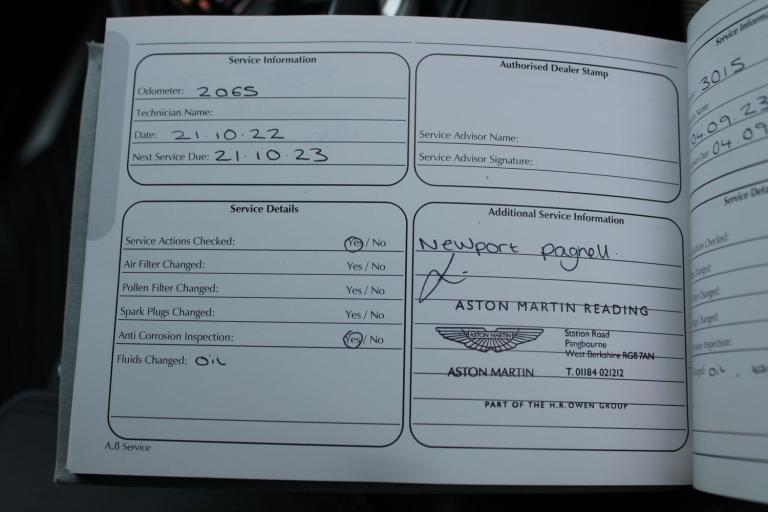 Service Information
Odometer: 2065
Technician Name:
Date: 21.10.22
Next Service Due: 21.10.23
Authorised Dealer Stamp
Service Advisor Name:
Service Advisor Signature:
Service Details
Service Actions Checked: Yes / No
Air Filter Changed: Yes / No
Pollen Filter Changed: Yes / No
Spark Plugs Changed: Yes / No
Anti Corrosion Inspection: Yes / No
Fluids Changed: Oil
Additional Service Information
Newport pagnell.
ASTON MARTIN READING
ASTON MARTIN
Station Road
Pangbourne
West Berkshire RG8 7AN
ASTON MARTIN
T. 01184 021212
PART OF THE H.R.OWEN GROUP
A.8 Service
Service
3015
04.09.23
04.09
Service
Oil